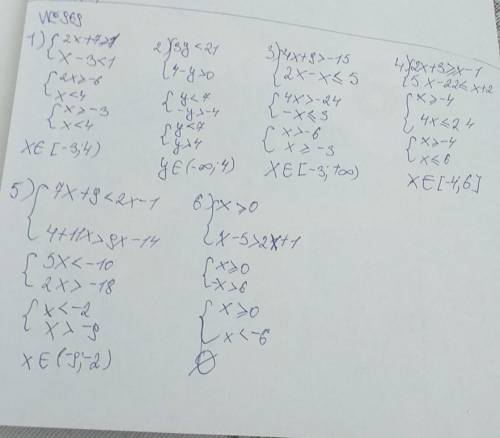 №969
1) {2x+7>1
x-3<1
{2x>-6
x<4
{x>-3
x<4
x∈[-3;4)
2) {3y<21
4-y>0
{y<7
-y>-4
{y<7
y>4
y∈(-∞;4)
3) {4x+9>-15
2x-x≤5
{4x>-24
-x≤3
{x>-6
x≥-3
x∈[-3;+∞)
4) {2x+3≥x-1
5x-22≤x+2
{x≥-4
4x≤24
{x≥-4
x≤6
x∈[-4;6]
5) {7x+9<2x-1
4+11x>9x-14
{5x<-10
2x>-18
{x<-2
x>-9
x∈(-9;-2)
6) {x≥0
x-5>2x+1
{x≥0
-x>6
{x≥0
x<-6
∅